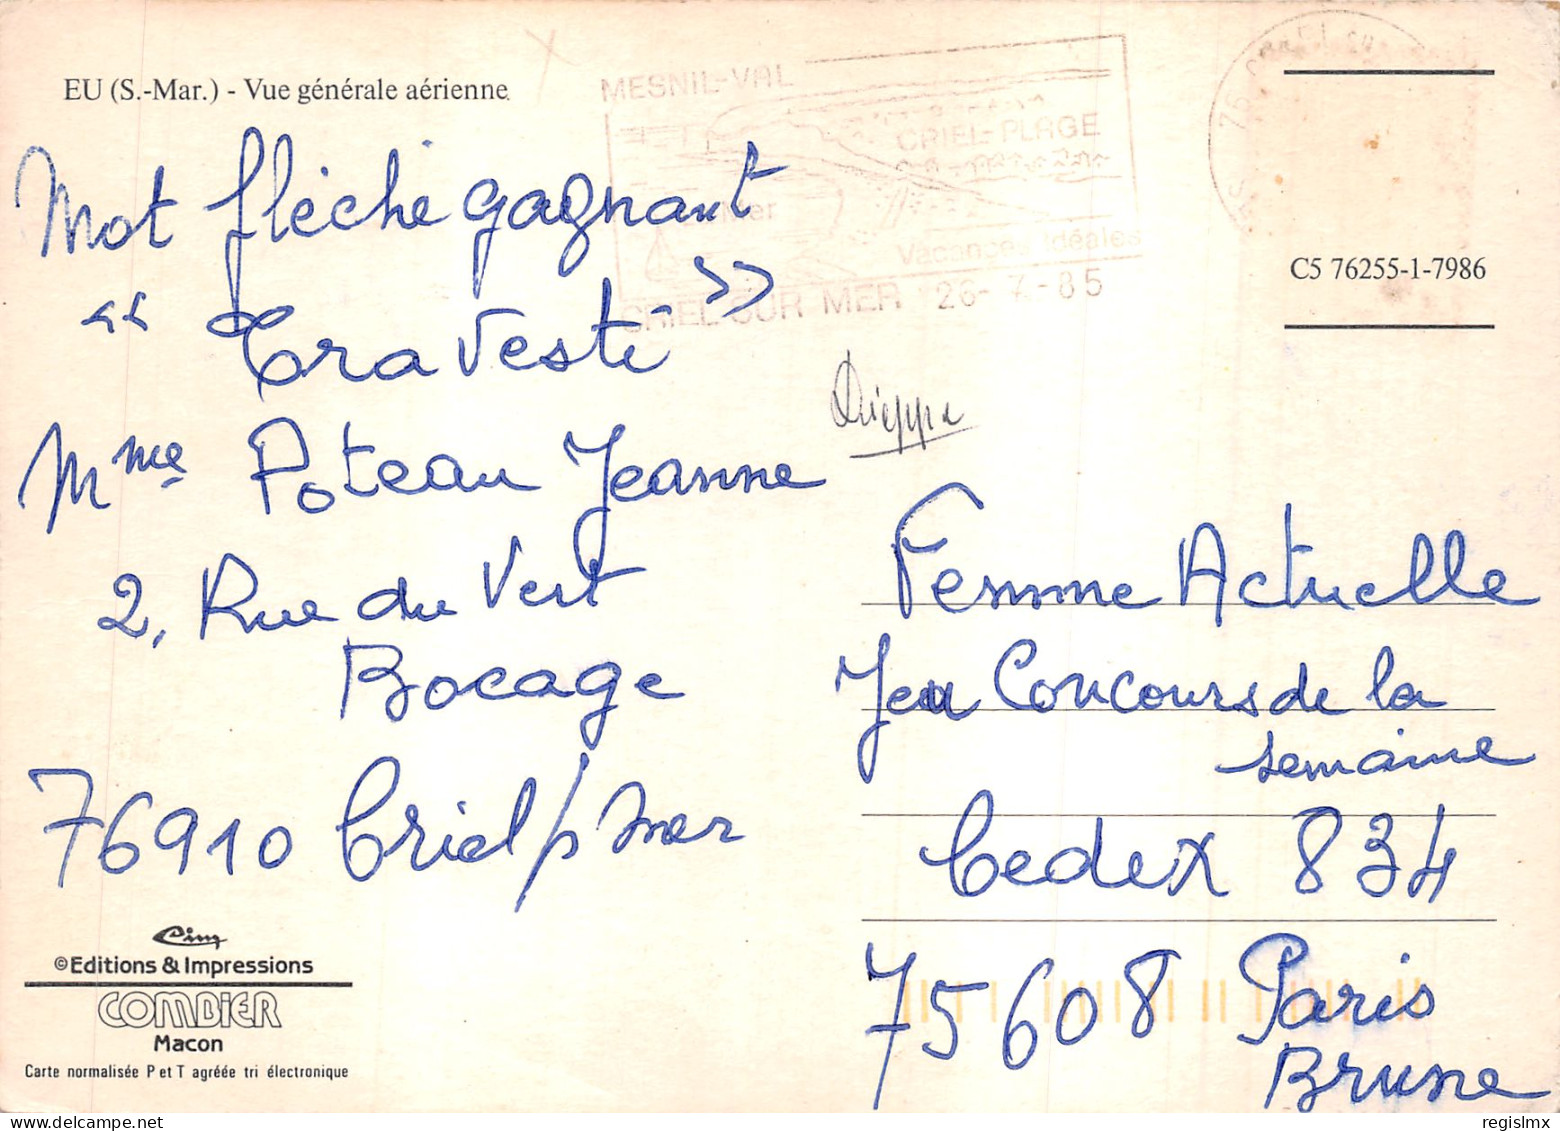 EU (S.-Mar.) - Vue générale aérienne
MESNIL-VAL
CRIEL-PLAGE
Mer
Vacances Idéales
CRIEL SUR MER 26-7-85
76
C5 76255-1-7986
Mot fléché gagnant
« Travesti »
Mme Poteau Jeanne
2, Rue du Vert
Bocage
76910 Criel s/ mer
Dieppe
Femme Actuelle
Jeu Concours de la
semaine
Cedex 834
75608 Paris
Brune
Cim
©Editions & Impressions
COMBIER
Macon
Carte normalisée P et T agréée tri électronique
regislmx